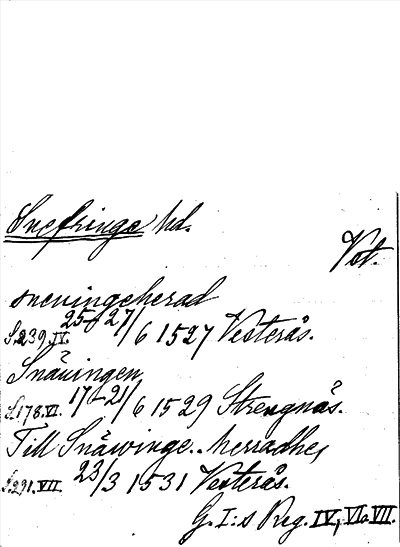 Snefringe hd.
Vst.
sneuingeherad
S.239.IV. 25-27/6 1527 Vesterås.
Snäuingen
S.178.VI. 17-21/6 1529 Strengnäs.
Till Snäwinge-herradhe,
S.291.VII. 23/3 1531 Vesterås.
G. I:s Reg. IV, VI o. VII.